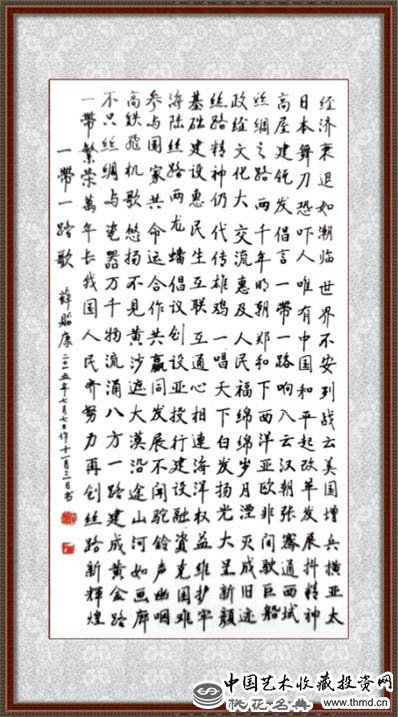 经济衰退如潮临世界不安列战云美国增兵横亚太
日本舞刀恐吓人唯有中国和平起改革发展抖精神
高屋建瓴发倡言一带一路响入云汉朝张骞通西域
丝绸之路两千年明朝郑和下西洋亚欧非间驶巨船
政经文化大交流惠及人民福绵绵岁月湮灭成旧迹
丝路精神仍代传雄鸡一唱天下白发扬光大呈新顏
基础建设惠民生互联互通心相连海洋权益维护牢
海陆丝路两龙蟠倡议创设亚投行建设融资克困难
参与国家共命运合作共赢同发展不闻驼铃声幽咽
高铁飞机歌悠扬不见黄沙遮大漠沿途山河如画廊
不只丝绸与瓷器万千物流涌八方一路建成黄金路
一帶繁荣萬年长我国人民齐努力再创丝路新辉煌
一帶一路歌
薛贻康二〇一五年七月七日作十一月三日书
中国艺术收藏投资网
桃花名典 www.thmd.cn